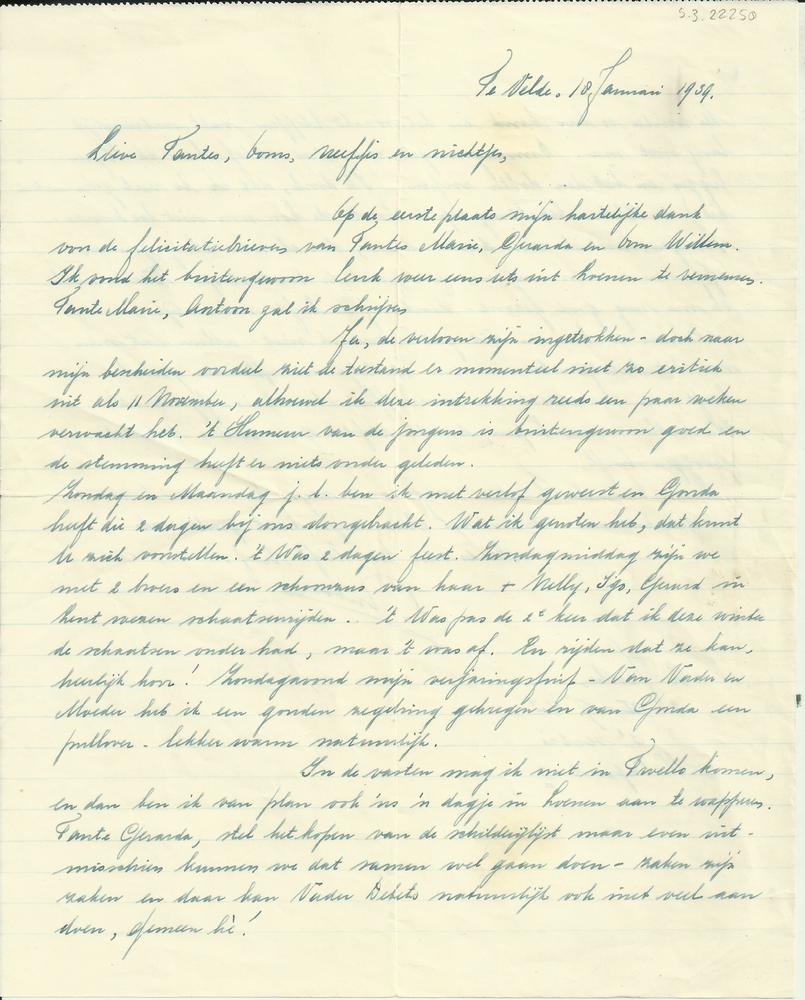 5.3.22250
Te Velde, 18 Januari 1939.
Lieve Tantes, Ooms, neefjes en nichtjes,
Op de eerste plaats mijn hartelijke dank
voor de felicitatiebrieven van Tantes Marie, Gerarda en Oom Willem.
Ik vond het buitengewoon leuk weer eens iets uit Loenen te vernemen.
Tante Marie, Antoon zal ik schrijven
Ja, de verloven zijn ingetrokken - doch naar
mijn bescheiden oordeel ziet de toestand er momenteel niet zo critiek
uit als 11 November, alhoewel ik deze intrekking reeds een paar weken
verwacht heb. 't Humeur van de jongens is buitengewoon goed en
de stemming heeft er niets onder geleden.
Zondag en Maandag j.l. ben ik met verlof geweest en
heeft die 2 dagen bij ons doorgebracht. Wat ik genoten heb, dat kunt
U zich voorstellen. 't Was 2 dagen feest. Zondagmiddag zijn we
met 2 broers en een schoonzus van haar + Nelly, Gerard in
wezen schaatsenrijden. 't Was pas de 2e keer dat ik deze winter
de schaatsen onder had, maar 't was af. En rijden dat ze kan,
heerlijk hoor! Zondagavond mijn verjaringsfuif - Van Vader en
Moeder heb ik een gouden zegelring gekregen en van een
pullover - lekker warm natuurlijk.
In de vasten mag ik niet in Twello komen,
en dan ben ik van plan ook 'ns 'n dagje in Loenen aan te wapperen.
Tante Gerarda, stel het kopen van de schilderijlijst maar even uit -
misschien kunnen we dat samen wel gaan doen - zaken zijn
zaken en daar kan Vader natuurlijk ook niet veel aan
doen, gemeen hè!